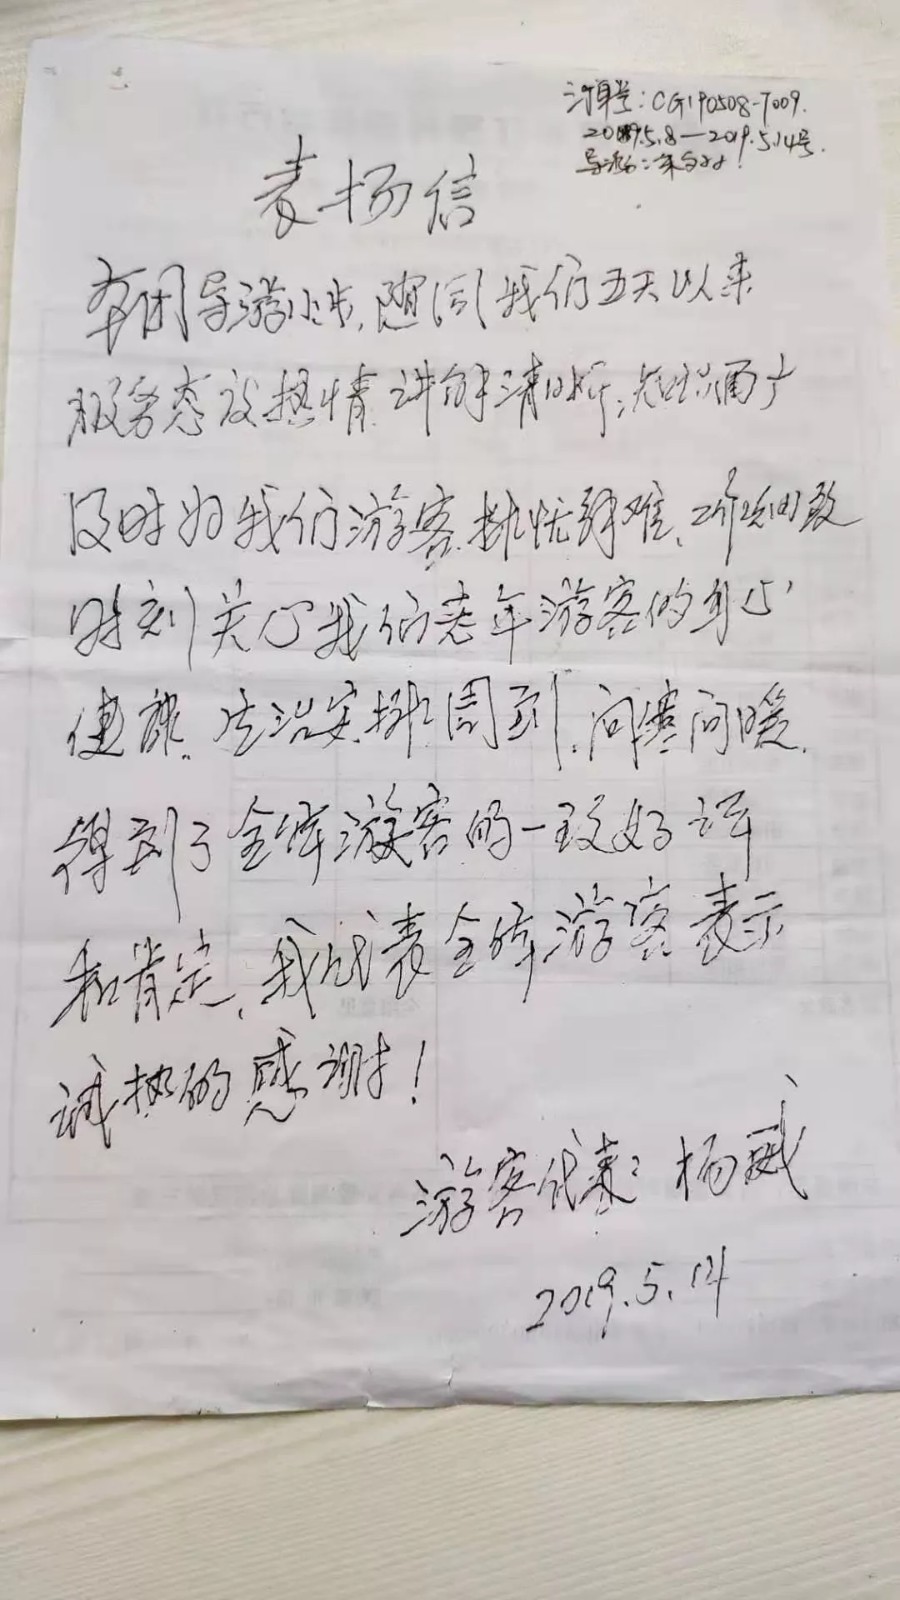 订单号：CG190508-T009.
2019.5.8—2019.5.14号.
导游：朱
表扬信
本团导游小朱，随同我们五天以来
服务态度热情，讲解清晰；知识面广
及时为我们游客排忧解难、工作细致
时刻关心我们老年游客的身心
健康，生活安排周到，问寒问暖，
得到了全体游客的一致好评
和肯定，我代表全体游客表示
诚挚的感谢！
游客代表：杨威
2019.5.14